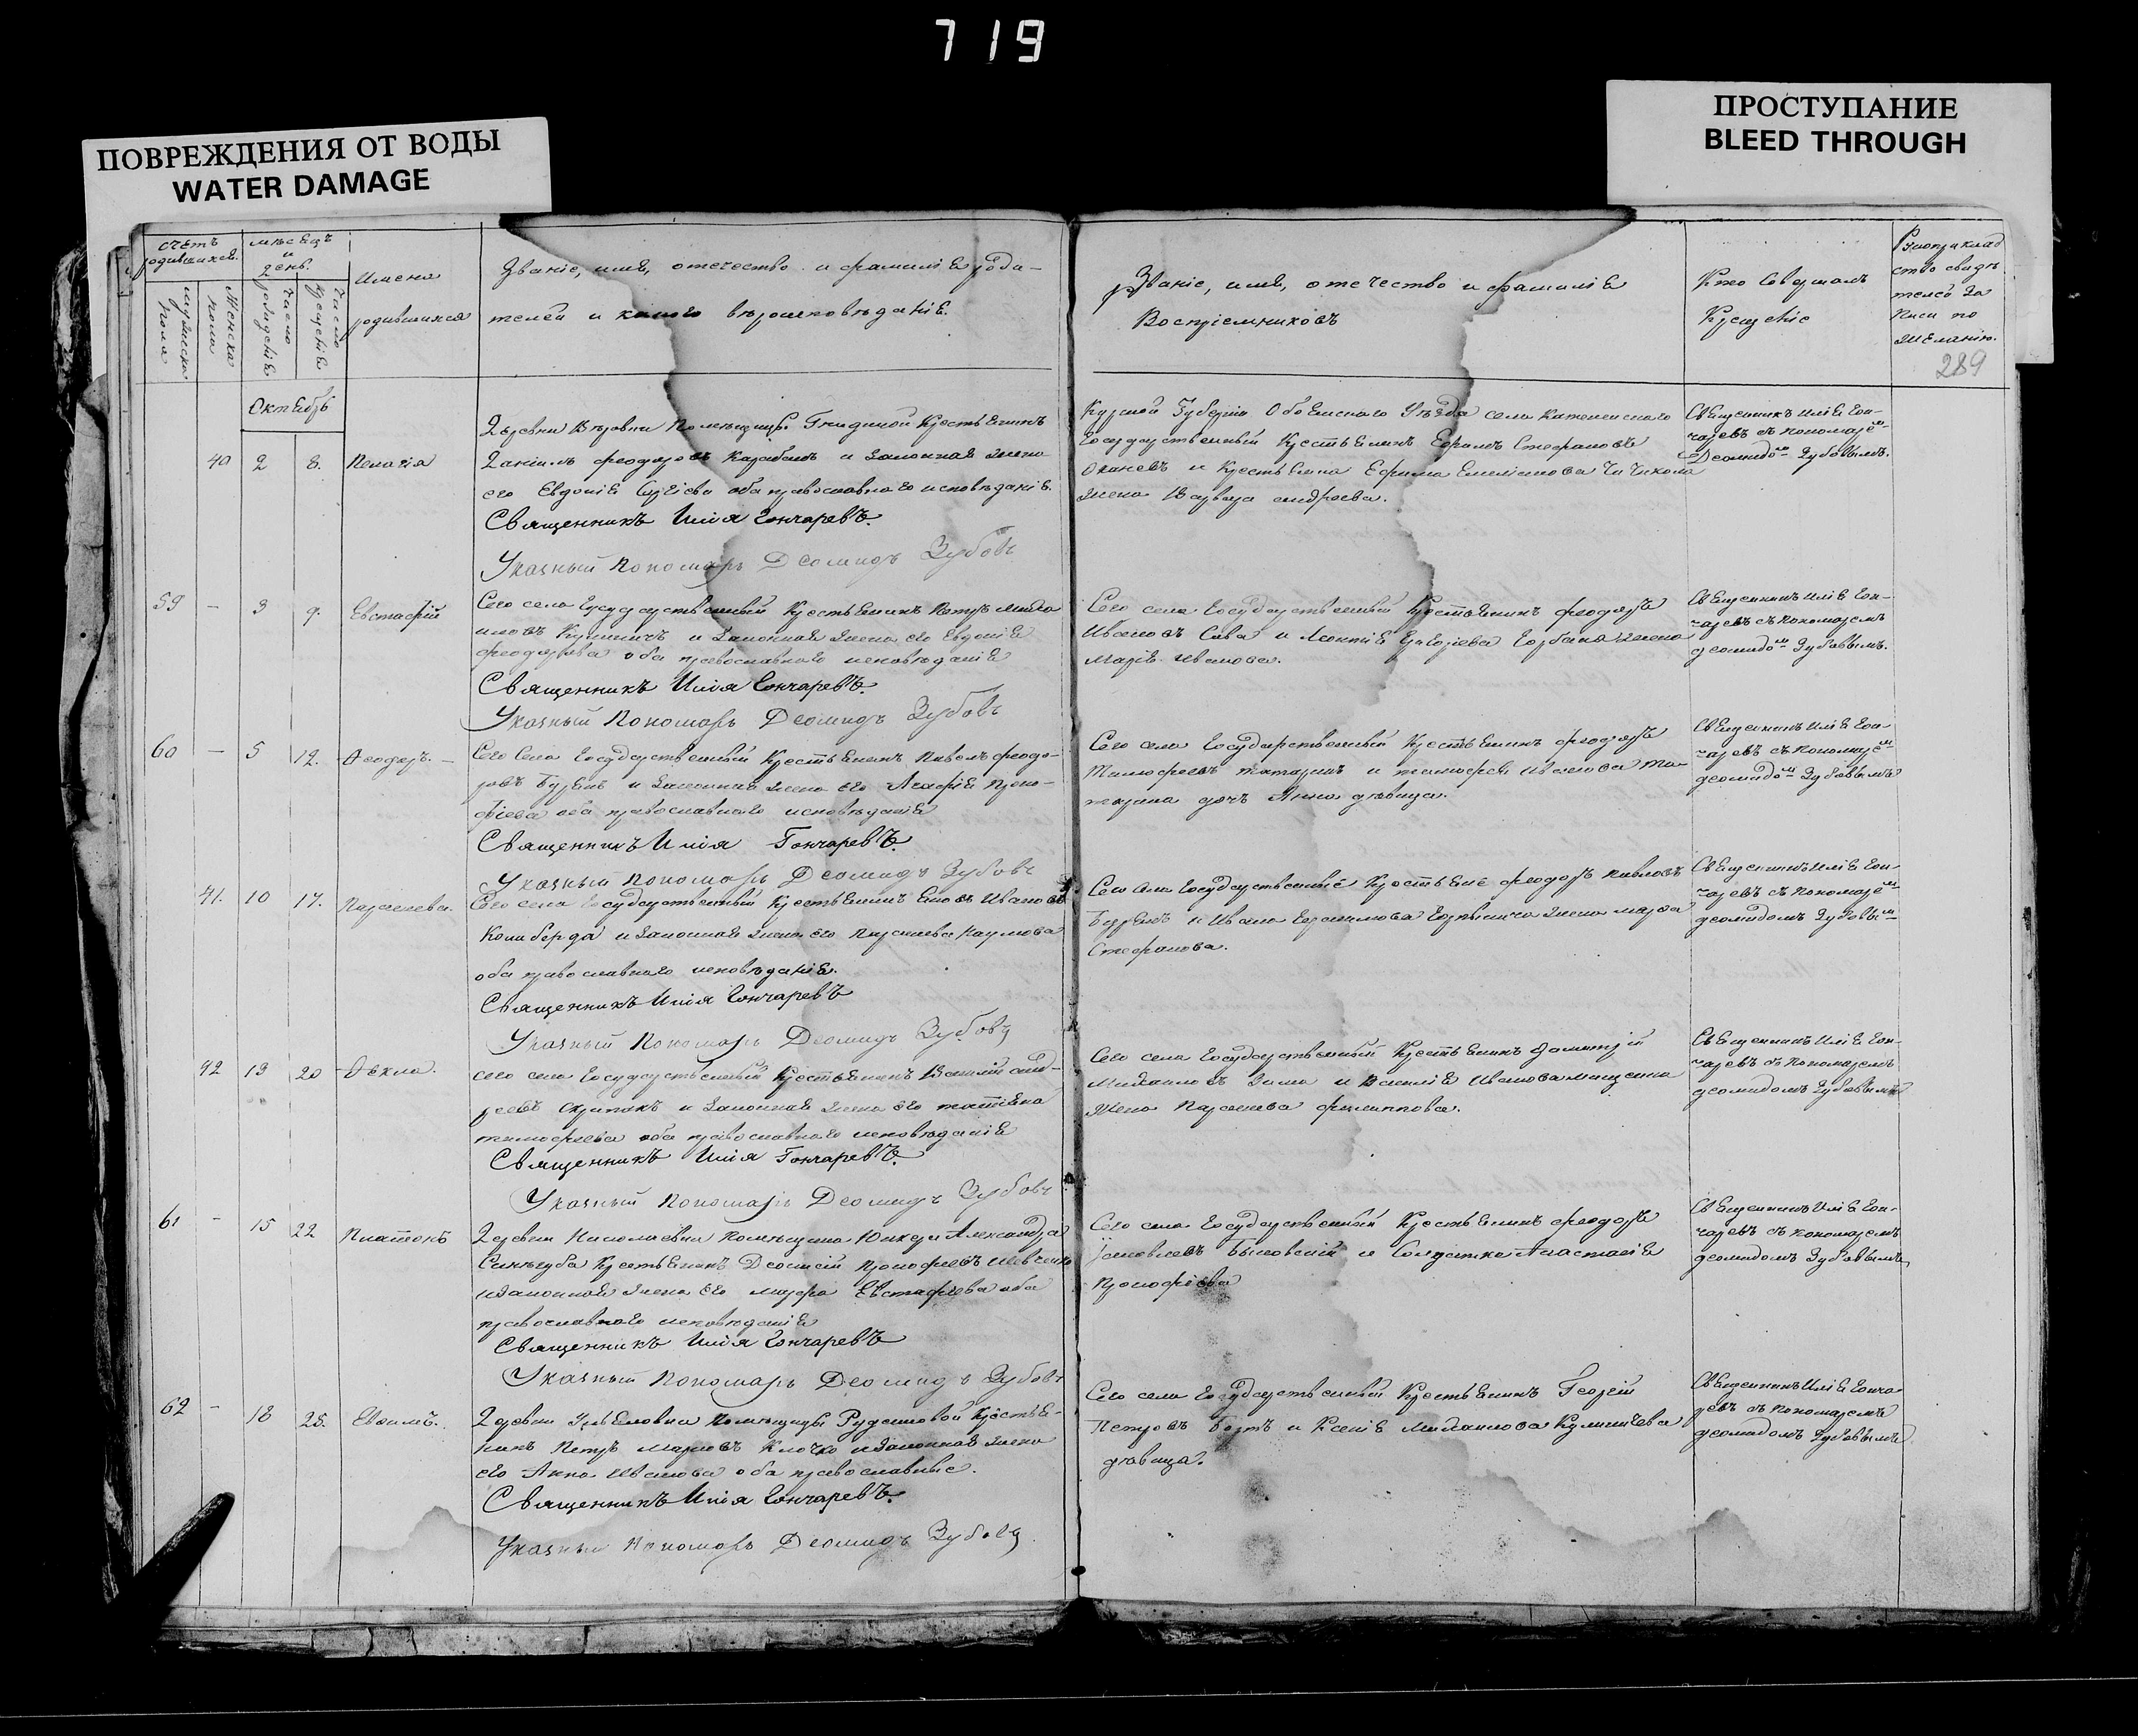 719
ПОВРЕЖДЕНИЯ ОТ ВОДЫ
WATER DAMAGE
ПРОСТУПАНИЕ
BLEED THROUGH
счетъ
родившихся.
мѣсецъ
и
день.
Имена
родившихся
мужеска
пола
Женска
пола
число
рождения
число
крещения
Званіе, имя, отечество и фамилия роди-
телей и какого вѣроисповѣданія.
Званіе, имя, отечество и фамилия
Воспріемниковъ
Кто Совершалъ
Крещеніе
Рукоприклад
ство свидѣ
телей за
писи по
желанію.
289
Октябрь
40 2 8. Пелагія
Деревни Помѣщицы Крестьянинъ
Даніилъ Феодоровъ и законная жена
его Евдокія оба православнаго исповѣданія.
Священникъ Илія Гончаревъ.
Указный Пономарь Деомидъ Зубовъ
Курской Губерніи Обоянскаго Уѣзда села
Государственный Крестьянинъ Стефановъ
и Крестьянина Ефима Емелианова
жена Варвара Андреева.
Священникъ Илія Гон-
чаревъ съ пономаре м
Деомидо м Зубовымъ.
59 — 3 9. Евстафій
Сего села Государственный Крестьянинъ Петръ Михаи
ловъ и Законная жена его Евдокія
Феодорова оба православнаго исповѣданія
Священникъ Илія Гончаревъ.
Указный Пономарь Деомидъ Зубовъ
Сего села Государственный Крестьянинъ Феодоръ
Ивановъ Сава и Григорьева жена
Марія Иванова.
Священникъ Илія Гон-
чаревъ съ пономаремъ
деомидо м Зубовымъ.
60 — 5 12. Ѳеодоръ. —
Сего Села Государственный Крестьянинъ Павелъ Феодо-
ровъ и законная жена его Агафія Проко-
фіева оба православнаго исповѣданія
Священникъ Илія Гончаревъ.
Указный Пономарь Деомидъ Зубовъ
Сего села Государственный Крестьянинъ Феодоръ
Тимофеевъ Татаринъ и Тимофея Иванова Та-
тарина дочь Анна дѣвица.
Священникъ Илія Гон-
чаревъ съ Пономаре м
деомидо м Зубовымъ
41. 10 17. Параскева.
Сего села Государственный Крестьянинъ Ивановъ
Коливерда и Законная жена его Параскева Наумова
оба православнаго исповѣданія.
Священникъ Илія Гончаревъ
Указный Пономарь Деомидъ Зубовъ
Феодоръ Павловъ
и Ивана жена Марфа
Стефанова.
Священникъ Илія Гон-
чаревъ съ Пономаре м
деомидомъ Зубовы м
42 13 20 Ѳекла.
Сего села Государственный Крестьянинъ Василій Анд-
реевъ Скрипокъ и Законная жена его Татіана
Тимофеева оба православнаго исповѣданія
Священникъ Илія Гончаревъ.
Указный Пономарь Деомидъ Зубовъ
Сего села Государственный Крестьянинъ Димитрій
Михаиловъ Зима и Василія Иванова
Жена Параскева Филиппова.
Священникъ Илія Гон-
чаревъ съ Пономаремъ
деомидомъ Зубовымъ
61 — 15 22 Платонъ
Деревни Николаевки Помѣщика Юнкера Александра
Синегуба Крестьянинъ Прокофіевъ Шевченко
и Законная жена его Евстафіева оба
православнаго исповѣданія
Священникъ Илія Гончаревъ
Указный Пономарь Деомидъ Зубовъ
Сего села Государственный Крестьянинъ Феодоръ
Яковлевъ и Солдатка Анастасія
Прокофіева
Священникъ Илія Гон-
чаревъ съ пономаремъ
деомидомъ Зубовымъ
62 — 18 25. Евѳимъ.
Деревни Помѣщицы Крестья-
нинъ Петръ Марковъ Клочко и Законная жена
его Анна Иванова оба православные.
Священникъ Илія Гончаревъ.
Указный Пономарь Деомидъ Зубовъ
Сего села Государственный Крестьянинъ Георгій
Петровъ и Ксенія Михаилова Куличичева
дѣвица.
Священникъ Илія Гонча
ревъ съ Пономаремъ
деомидомъ Зубовымъ